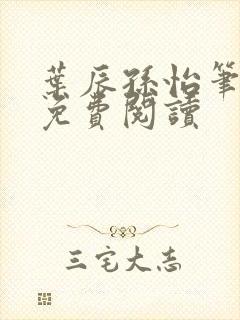 葉辰孫怡筆
免費閱讀
三宅大志